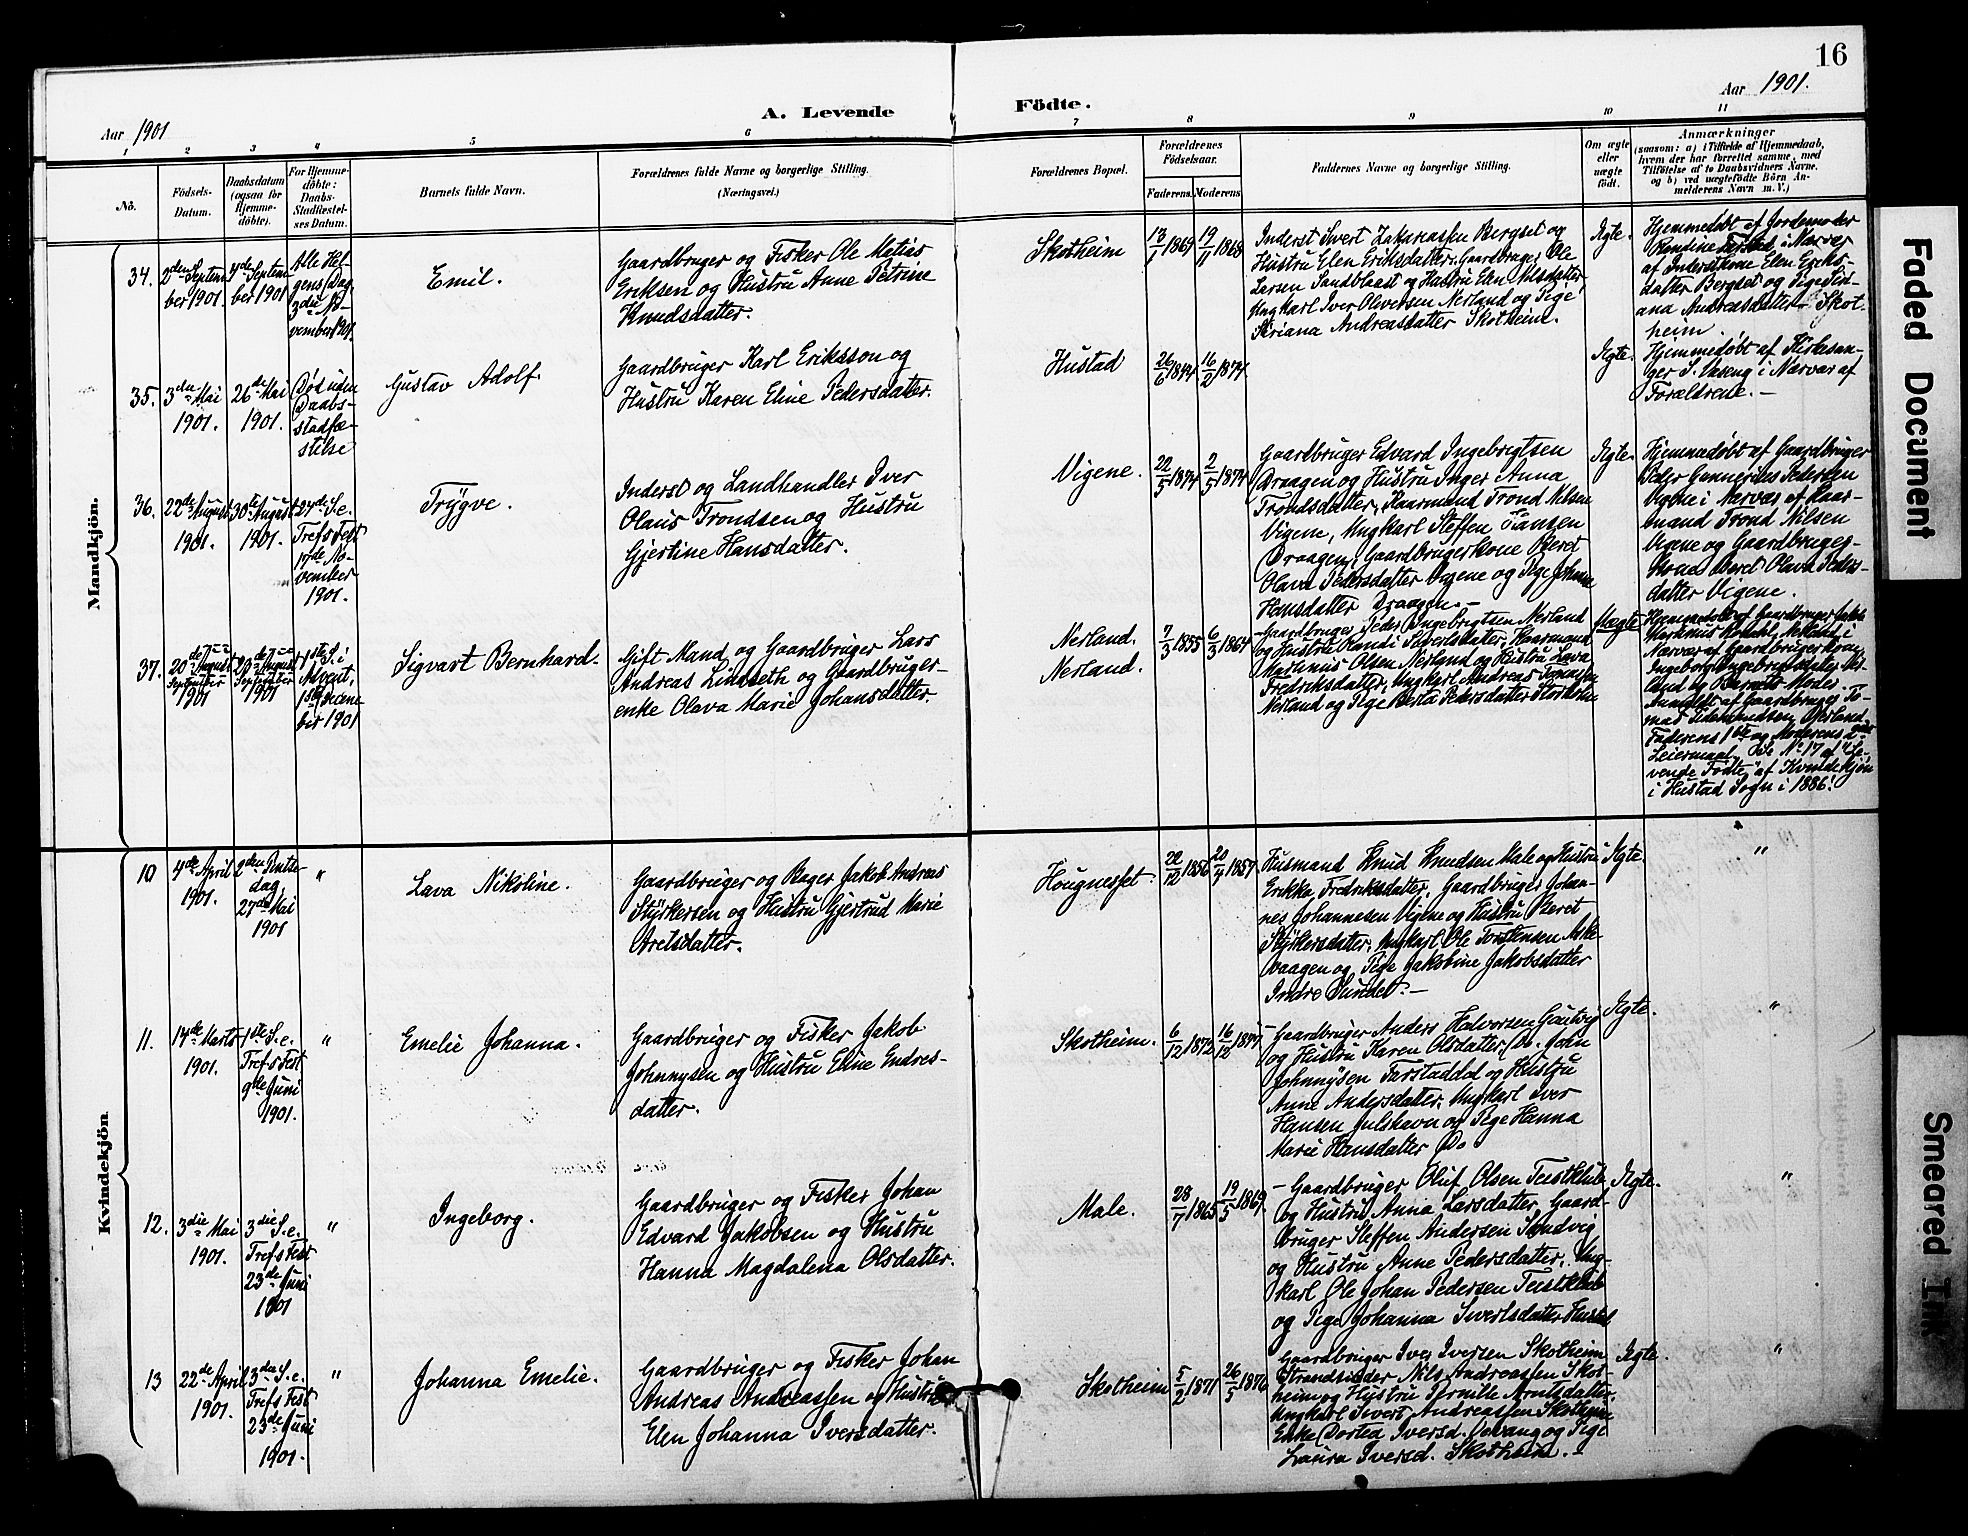 16
Aar 1901
A. Levende Födte.
Aar 1901.
1 2 3 4 5 6 7 8 9 10 11
No.
Födsels-
Datum.
Daabsdatum
(ogsaa for
Hjemme-
döbte).
For Hjemme-
döbte:
Daabs-
Stadfæstel-
ses Datum.
Barnets fulde Navn.
Forældrenes fulde Navne og borgerlige Stilling.
(Næringsvei.)
Forældrenes Bopæl.
Forældrenes
Födselsaar.
Faderens. Moderens.
Faddernes Navne og borgerlige Stilling.
Om ægte
eller
uægte
födt.
Anmærkninger
(saasom: a) i Tilfælde af Hjemmedaab,
hvem der har forrettet samme, med
Tilföielse af to Daabsvidners Navne.
og b) ved uægtefödte Börn An-
melderens Navn m. V.)
Mandkjön.
34.
2den Septem-
ber 1901
4de Septem-
ber 1901
Alle Hel-
gens Dag
3die No-
vember 1901.
Emil.
Gaardbruger og Fisker Ole Matias
Eriksen og Hustru Anne Petrine
Knudsdatter.
Skotheim
13/1 1869
19/11 1868
Inderst Sivert Zakariassen Bergset og
Hustru Elen Eriksdatter, Gaardbruger Ole
Larsen Sandblaast og Hustru Elen Nilsdatter,
Ungkarl Iver Oliversen Nerland og Pige
Siriana Andreasdatter Skotheim.
Ægte.
Hjemmedøbt af Jordemoder
i Nærvær
af Inderstkone Elen Eriks-
datter Bergset og Pige Siri-
ana Andreasdatter Skot-
heim
35.
3die Mai
1901.
26de Mai
1901.
Død uden
Daabs-
stadfæ-
stelse
Gustav Adolf.
Gaardbruger Karl Eriksson og
Hustru Karen Eline Pedersdatter.
Hustad
26/6 1844
16/2 1874
Ægte.
Hjemmedøbt af Kirkesan-
ger S. i Nærvær af
Forældrene. —
36.
22de August
1901.
30te August
1901.
24de S. e.
Trefs Fest
17de No-
vember
1901.
Trygve.
Inderst og Landhandler Iver
Olaus Trondsen og Hustru
Gjertine Hansdatter.
Vigene.
22/5 1874
2/5 1874
Gaardbruger Edvard Ingebrigtsen
Draagen og Hustru Inger Anna
Trondsdatter, Kaarmand Trond Nilsen
Vigene, Ungkarl Steffen Hansen
Draagen, Gaardbrugerkone Beret
Olava Pedersdatter Vigene og Pige Johanna
Hansdatter Draagen. —
Ægte.
Hjemmedøbt af Gaardbruger
Peder Gunnerius Pedersen
Vigene i Nærvær af Kaar-
mand Trond Nilsen
Vigene og Gaardbruger-
kone Beret Olava Peders-
datter Vigene.
37.
20de
September
1901
September
1901
1ste S. i
Advent,
1ste Decem-
ber 1901
Sigvart Bernhard.
Gift Mand og Gaardbruger Lars
Andreas Lindseth og Gaardbruger-
enke Olava Marie Johansdatter.
Nerland.
Nerland.
7/3 1855
6/3 1864
Gaardbruger Peder Ingebrigtsen Nerland
og Hustru Randi Sivertsdatter, Kaarmand
Martinus Olsen Nerland og Hustru Lava
Fredriksdatter, Ungkarl Andreas
Nerland og Pige Pedersdatter
Uægte
Hjemmedøbt af Gaardbruger Jakob
Martinus i
Nærvær af Gaardbrugerkone
Ingeborg Ingebrigtsdatter Ner-
land og Barnets Moder.
Anmeldt af Gaardbruger To-
mas Nerland.
Faderens 1ste og Moderens 2det
Leiermaal. Se No 17 af "Le-
vende Fødte" af Kvindekjøn
i Hustad Sogn i 1886!
Kvindekjön
10
4de April
1901.
2den Pintse-
dag,
27de Mai
1901
"
Lava Nikoline.
Gaardbruger og Bager Jakob Andreas
Styrkersen og Hustru Gjertrud Marie
Aretsdatter.
Hougnesset.
22/12 1856
20/4 1857
Husmand Knud Knudsen Male og Hustru
Erikka Fredriksdatter, Gaardbruger Johan-
nes Johannesen Vigene og Hustru Beret
Styrkersdatter, Ungkarl Ole Torstensen Aske-
vaagen og Pige Jakobine Jakobsdatter
Indre Sundet. —
Ægte.
"
11.
14de Marts
1901.
1ste S. e.
Trefs Fest
9de Juni
1901.
"
Emelie Johanna.
Gaardbruger og Fisker Jakob
Johnnysen og Hustru Eline Endres-
datter.
Skotheim.
6/12 1872
16/12 1877
Gaardbruger Anders Halvorsen Gautvig
og Hustru Karen Olsdatter, Do. John
Johnnysen Farstaddal og Hustru
Anne Andersdatter, Ungkarl Iver
Hansen Julshavn og Pige Hanna
Marie Hansdatter Do
Ægte.
"
12.
3die Mai
1901.
3die S. e.
Trefs Fest
23de Juni
1901
"
Ingeborg.
Gaardbruger og Fisker Johan
Edvard Jakobsen og Hustru
Hanna Magdalena Olsdatter.
Male.
28/7 1865
19/5 1869
Gaardbruger Oluf Olsen Teistklub
og Hustru Anna Larsdatter, Gaard-
bruger Steffen Andersen Sandvig
og Hustru Anne Pedersdatter, Ung-
karl Ole Johan Pedersen Teistklub
og Pige Johanna Sivertsdatter Hustad
Ægte.
"
13
22de April
1901.
3die S. e.
Trefs Fest
23de Juni
1901.
"
Johanna Emelie.
Gaardbruger og Fisker Johan
Andreas Andreassen og Hustru
Elen Johanna Iversdatter.
Skotheim
5/2 1871
26/5 1876
Gaardbruger Iver Iversen Skotheim
Strandsidder Nils Andreassen Skot-
heim og Hustru Pernille Arntsdatter,
Ungkarl Sivert Andreassen Skotheim
Enke Dortea Iversd. og Pige
Laura Iversd. Skotheim. —
Ægte.
"
Faded Document
Smeared Ink